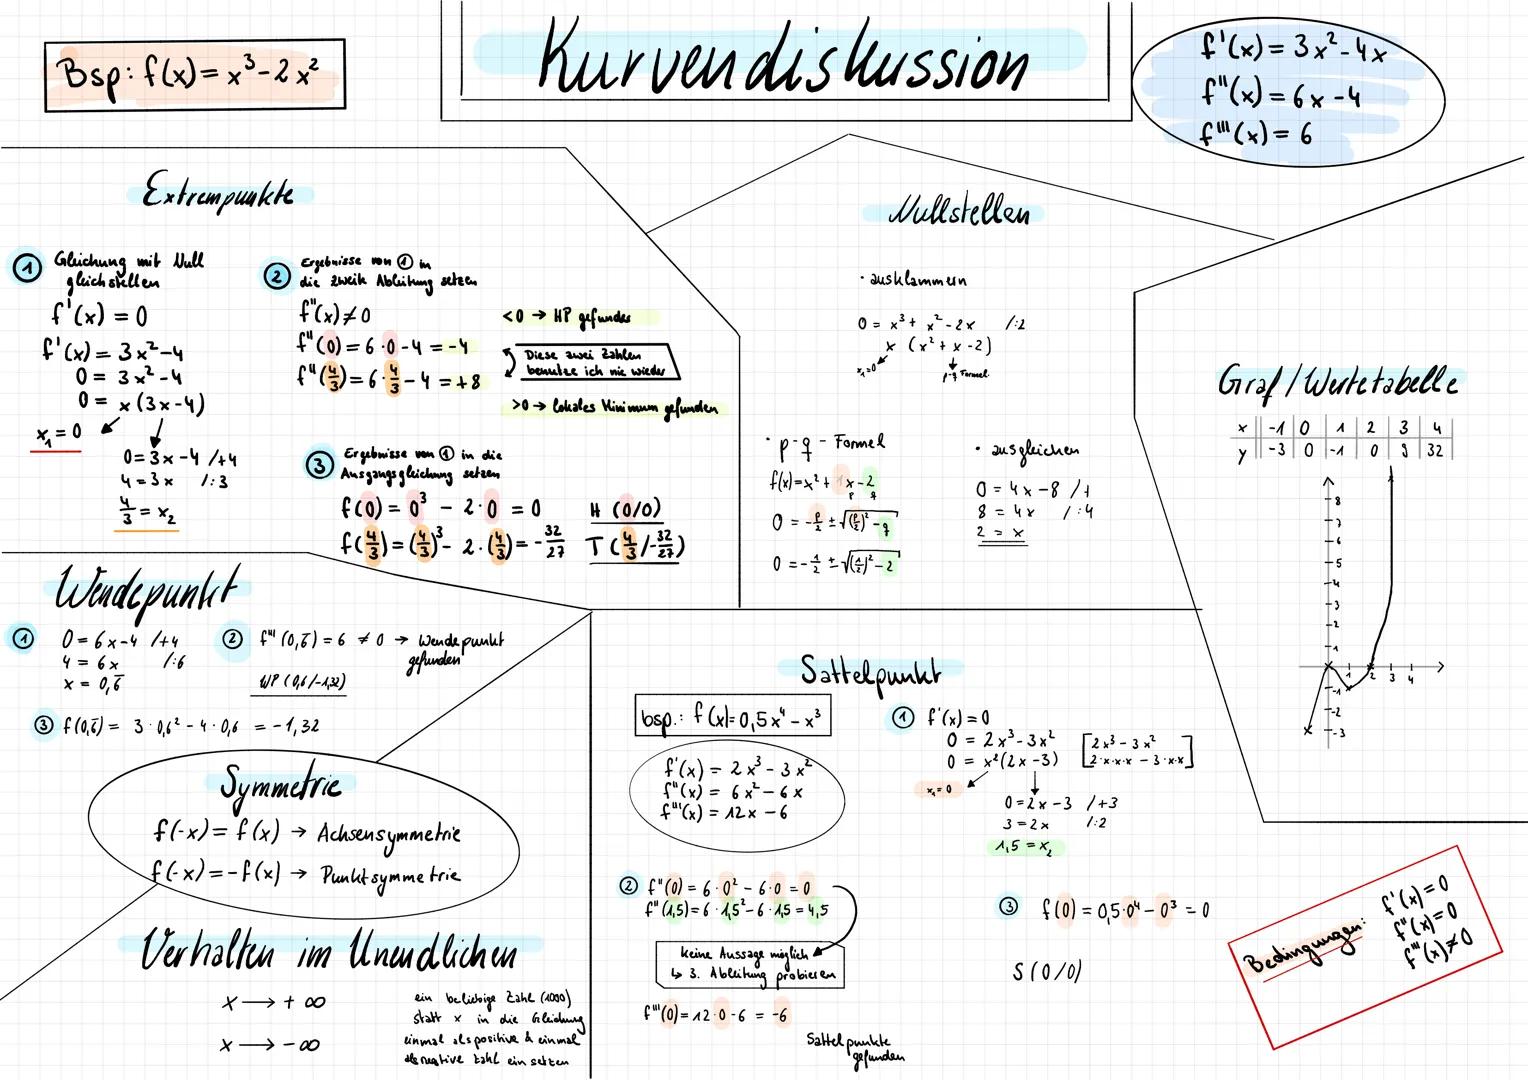 Bsp: f(x) = x³ - 2x²
Kurvendiskussion
f'(x) = 3x² - 4x
f''(x) = 6x - 4
f'''(x) = 6
Extrempunkte
① Gleichung mit Null
gleichstellen
f'(x) = 0
f'(x) = 3x² - 4
0 = 3x² - 4
0 = x (3x - 4)
x₁ = 0
0 = 3x - 4 /+4
4 = 3x /:3
4/3 = x₂
② Ergebnisse von ① in
die zweite Ableitung setzen
f''(x) ≠ 0
f''(0) = 6·0 - 4 = -4
f''(4/3) = 6·4/3 - 4 = +8
<0 → HP gefunden
Diese zwei Zahlen
benutze ich nie wieder
>0 → lokales Minimum gefunden
③ Ergebnisse von ① in die
Ausgangsgleichung setzen
f(0) = 0³ - 2·0 = 0 H (0/0)
f(4/3) = (4/3)³ - 2·(4/3) = -32/27 T (4/3/-32/27)
Nullstellen
· ausklammern
0 = x³ + x² - 2x /:2
x (x² + x - 2)
x₁=0
p-q Formel
· p-q-Formel
f(x) = x² + 1x - 2
p q
0 = -p/2 ± √((p/2)² - q)
0 = -1/2 ± √((1/2)² - 2)
· ausgleichen
0 = 4x - 8 /+
8 = 4x /:4
2 = x
Graf/Wertetabelle
x -1 0 1 2 3 4
y -3 0 -1 0 9 32
8
7
6
5
4
3
2
1
1 2 3 4
-1
-2
-3
Wendepunkt
① 0 = 6x - 4 /+4
4 = 6x /:6
x = 0,6̅
② f'''(0,6̅) = 6 ≠ 0 → Wendepunkt
gefunden
WP (0,6/-1,32)
③ f(0,6̅) = 3·0,6² - 4·0,6 = -1,32
Symmetrie
f(-x) = f(x) → Achsensymmetrie
f(-x) = -f(x) → Punktsymmetrie
Verhalten im Unendlichen
x → + ∞
x → - ∞
ein beliebige Zahl (1000)
statt x in die Gleichung
einmal als positive & einmal
als negative Zahl ein setzen
Sattelpunkt
bsp.: f(x) = 0,5x⁴ - x³
f'(x) = 2x³ - 3x²
f''(x) = 6x² - 6x
f'''(x) = 12x - 6
① f'(x) = 0
0 = 2x³ - 3x² [2x³ - 3x²
0 = x²(2x - 3) 2·x·x·x - 3·x·x]
x₁ = 0
0 = 2x - 3 /+3
3 = 2x /:2
1,5 = x₂
② f''(0) = 6·0² - 6·0 = 0
f''(1,5) = 6·1,5² - 6·1,5 = 4,5
keine Aussage möglich
↳ 3. Ableitung probieren
f'''(0) = 12·0 - 6 = -6
Sattelpunkte
gefunden
③ f(0) = 0,5·0⁴ - 0³ = 0
S (0/0)
Bedingungen: f'(x) = 0
f''(x) = 0
f'''(x) ≠ 0